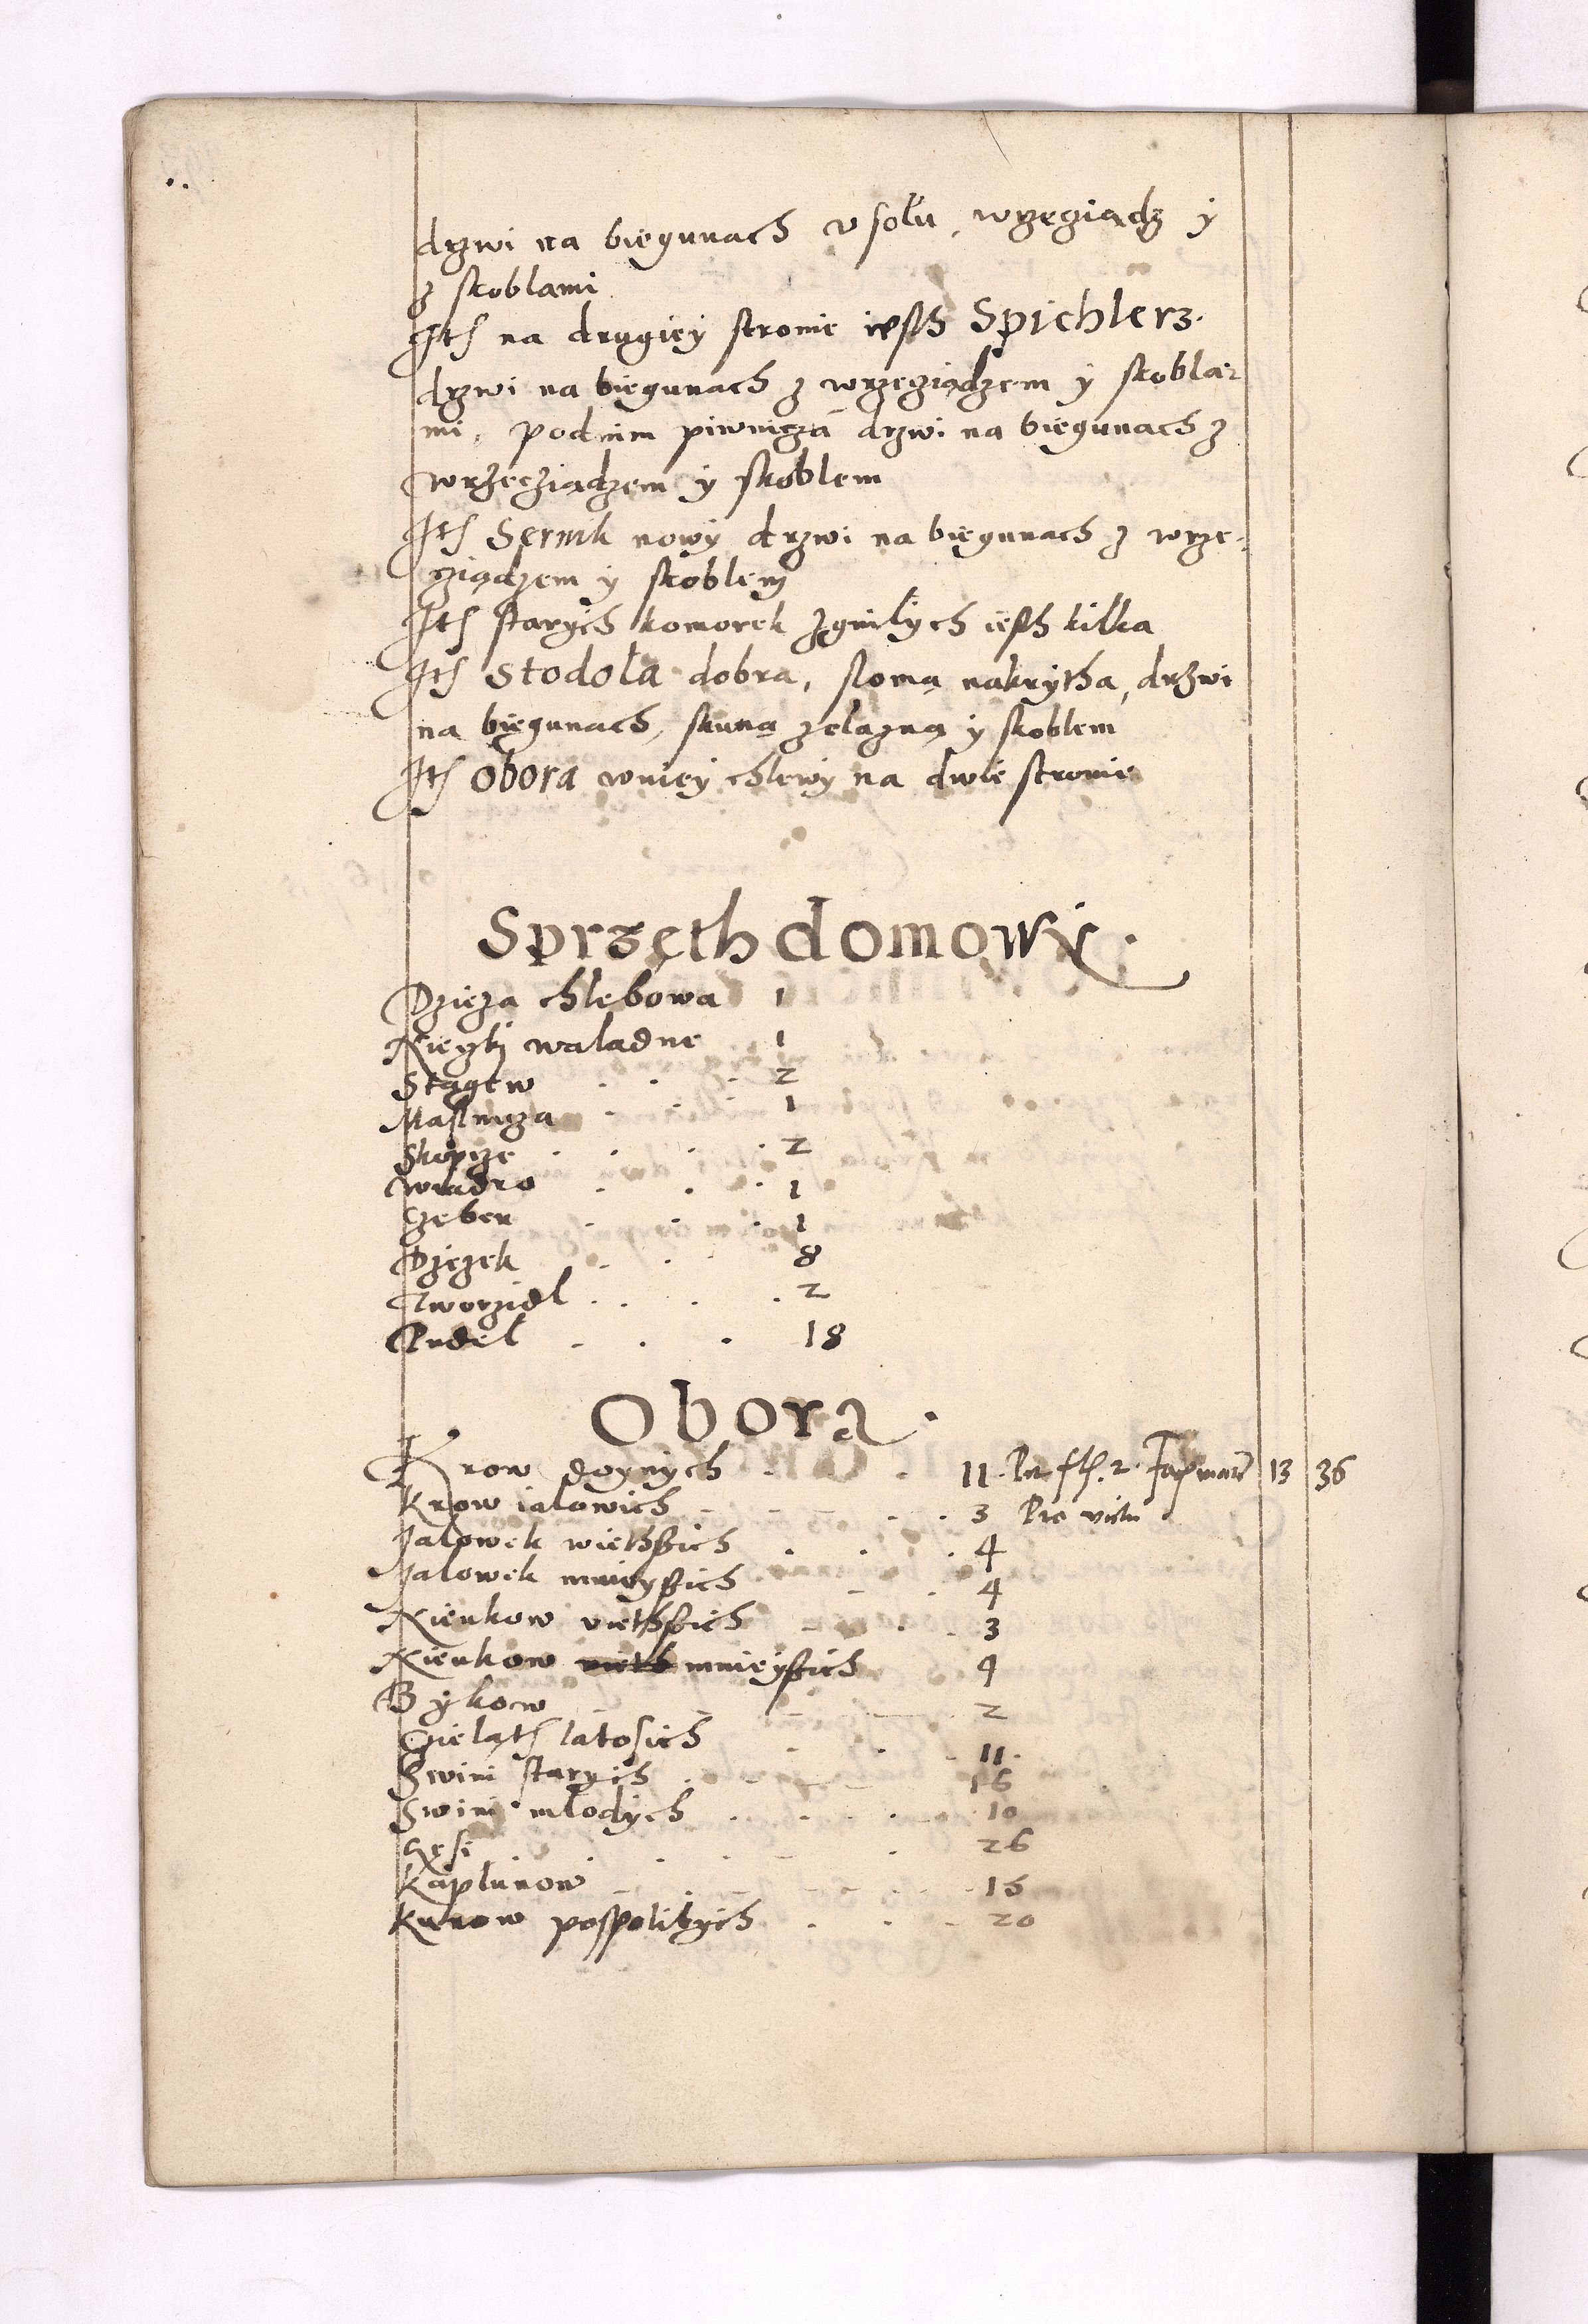 drzwi na biegunach v solu, wrzeciądz y
z skoblami
Ite na drugiey stronie iesth Spichlerz.
drzwi na biegunach z wrzeciądzem y skobla-
mi, podnim piwnicza drzwi na biegunach z
wrzecziądzem y skoblem
Ite Sernik nowy drzwi na biegunach z wrze-
cziądzem y skoblem
Ite starych komorek zgnilych iesth kilka
Ite Stodola dobra, slomą nakrytha, drzwi
na biegunach, skuną zelazną y skoblem
Ite Obora wniey chlewy na dwie stronie
Sprzęth domowy.
Dzieza chlebowa 1
waladne 1
Stągew 2
Maslnicza 1
Skopcze 2
Wiadro 1
Czeber 1
Dzieżek 8
Tworzidl 2
Pudel 18
Obora.
Krow doynych 11 13 36
Krow ialowich 3 Pro victu
Jalowek wiethssich 4
Jalowek mnieyssich 4
wiethssich 3
mnieyssich 4
Bykow 2
Cieląth latosich 11
Swini starych 16
Swini mlodych 10
Gęsi 26
Kaplunow 15
Kurow pospolitych 20